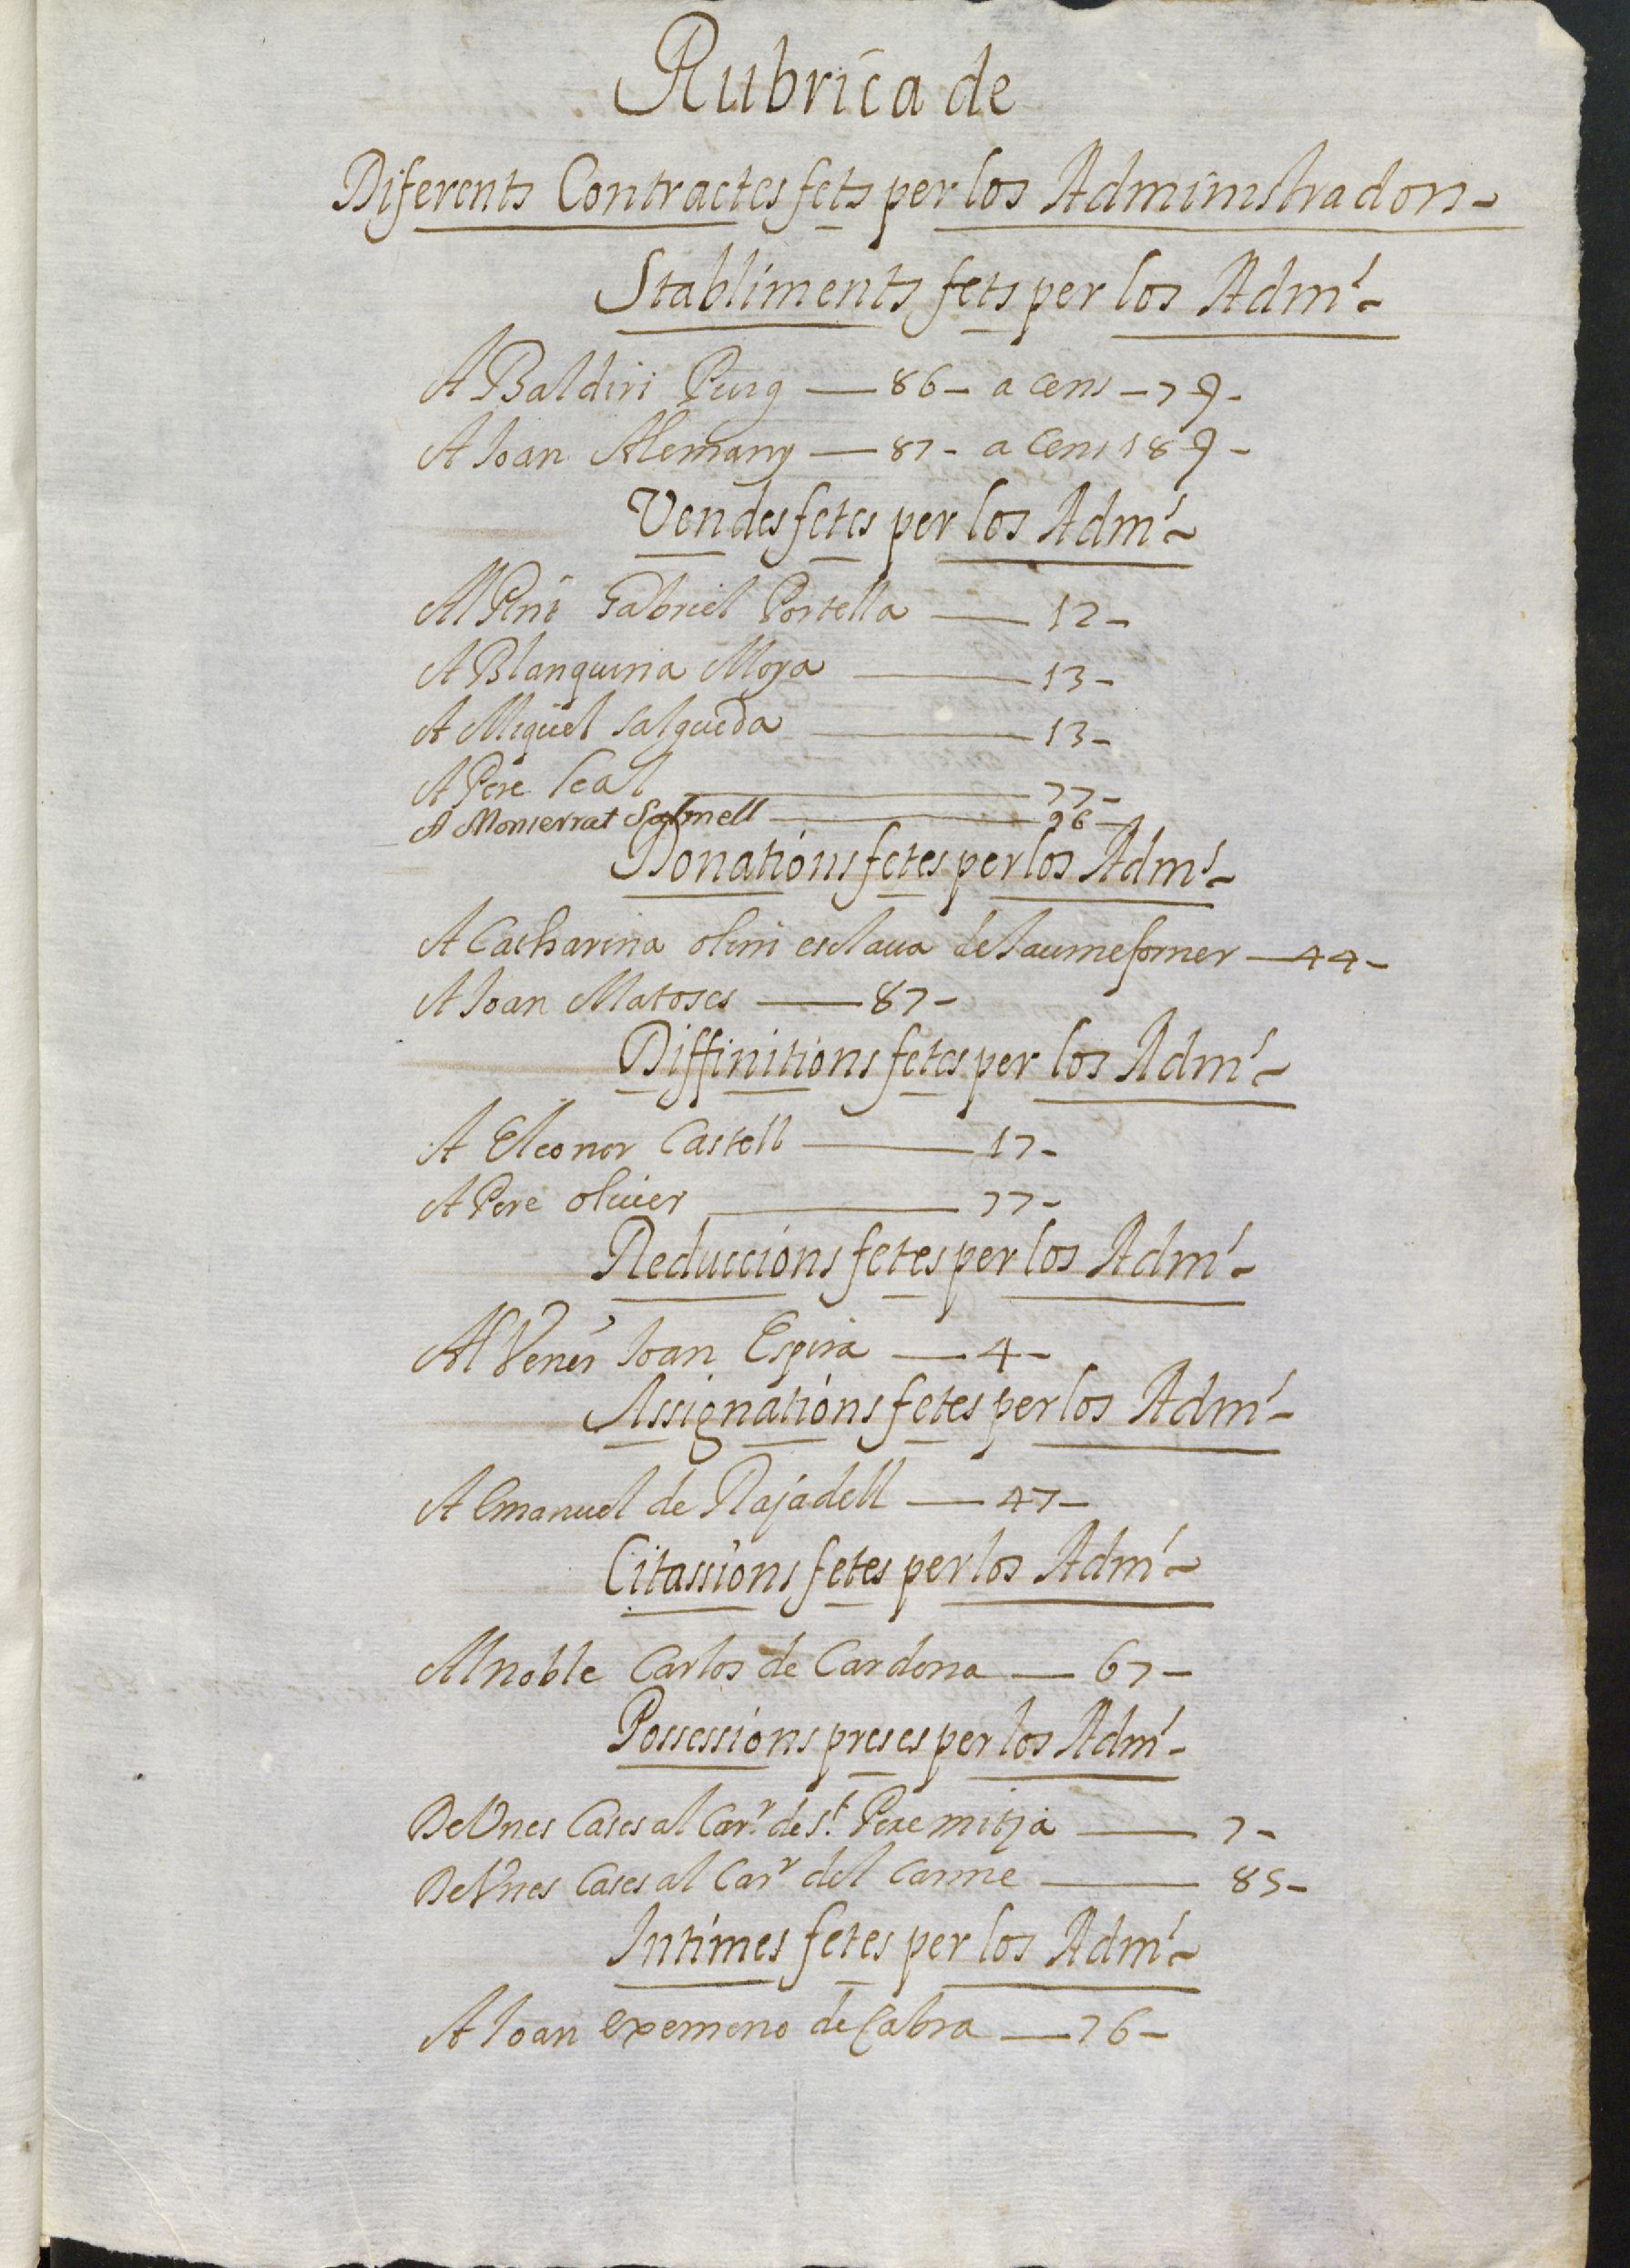 Rubrica de
Diferents Contractes fets per los Administradors
Stabliments fets per los Adm.s
A Baldiri Puig — 86 — a cens — 7
A Joan Alemany — 87 — a cens 18
Vendes fetes per los Adm.s
Al Gabriel Portella — 12 —
A Blanquina Moya — 13 —
A Miquel Salgueda — 13 —
A Pere Leal — 77 —
A Monserrat Salonell — 96 —
Donations fetes per los Adm.s
A Catharina olim esclaua de Jaume forner — 44 —
A Joan Matoses — 87 —
Diffinitions fetes per los Adm.s
A Eleonor Castell — 17 —
A Pere oliuer — 77 —
Reduccions fetes per los Adm.s
Al Joan Espira — 4 —
Assignations fetes per los Adm.s
A Emanuel de Rajadell — 47 —
Citassions fetes per los Adm.s
Al noble Carlos de Cardona — 67 —
Possessions preses per los Adm.s
De Unes Cases al Car.r de S.t Pere mitja — 7 —
De Unes Cases al Car.r del Carme — 85 —
Intimes fetes per los Adm.s
A Joan exemeno de Çabra — 76 —